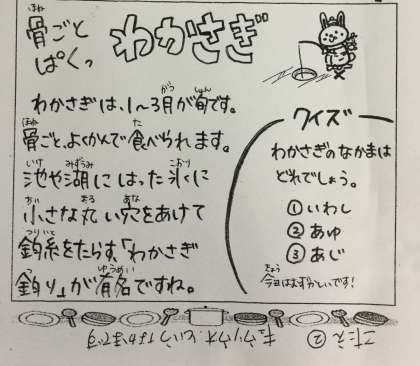 骨ごと
ぱくっ
わかさぎ
わかさぎは、1〜3月が旬です。
骨ごと、よくかんで食べられます。
池や湖には、た氷に
小さな丸い穴をあけて
釣糸をたらす、「わかさぎ
釣り」が有名ですね。
クイズ
わかさぎのなかまは
どれでしょう。
①いわし
②あゆ
③あじ
今日はむずかしいです!
こたえ②
キュウリウオ というなかまです